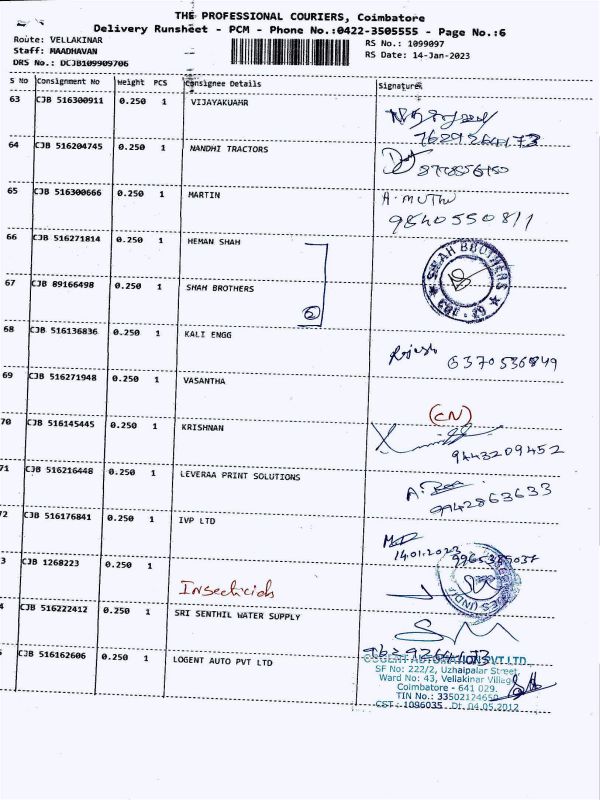 THE PROFESSIONAL COURIERS, Coimbatore
Delivery Runsheet - PCM - Phone No.:0422-3505555 - Page No.:6
Route: VELLAKINAR
RS No.: 1099097
Staff: MAADHAVAN
RS Date: 14-Jan-2023
DRS No.: DCJB109909706
S No Consignment No Weight PCS Consignee Details Signatures
63 CJB 516300911 0.250 1 VIJAYAKUAHR
7629564173
64 CJB 516204745 0.250 1 NANDHI TRACTORS
65 CJB 516300666 0.250 1 MARTIN A. MUTHU
9840550811
66 CJB 516271814 0.250 1 HEMAN SHAH
67 CJB 89166498 0.250 1 SHAH BROTHERS
2
SHAH BROTHERS
68 CJB 516136836 0.250 1 KALI ENGG
Rajesh 6370536849
69 CJB 516271948 0.250 1 VASANTHA
(CN)
70 CJB 516145445 0.250 1 KRISHNAN
9443209452
71 CJB 516216448 0.250 1 LEVERAA PRINT SOLUTIONS
9942863633
72 CJB 516176841 0.250 1 IVP LTD
14.01.2023 9965389037
3 CJB 1268223 0.250 1
Insecticids
(INDIA)
4 CJB 516222412 0.250 1 SRI SENTHIL WATER SUPPLY
CJB 516162606 0.250 1 LOGENT AUTO PVT LTD
PVT LTD
SF No: 222/2, Uzhaipalar Street
Ward No: 43, Vellakinar Village
Coimbatore - 641 029.
TIN No.: 33502124650
CST : 1096035 Dt. 04.05.2012